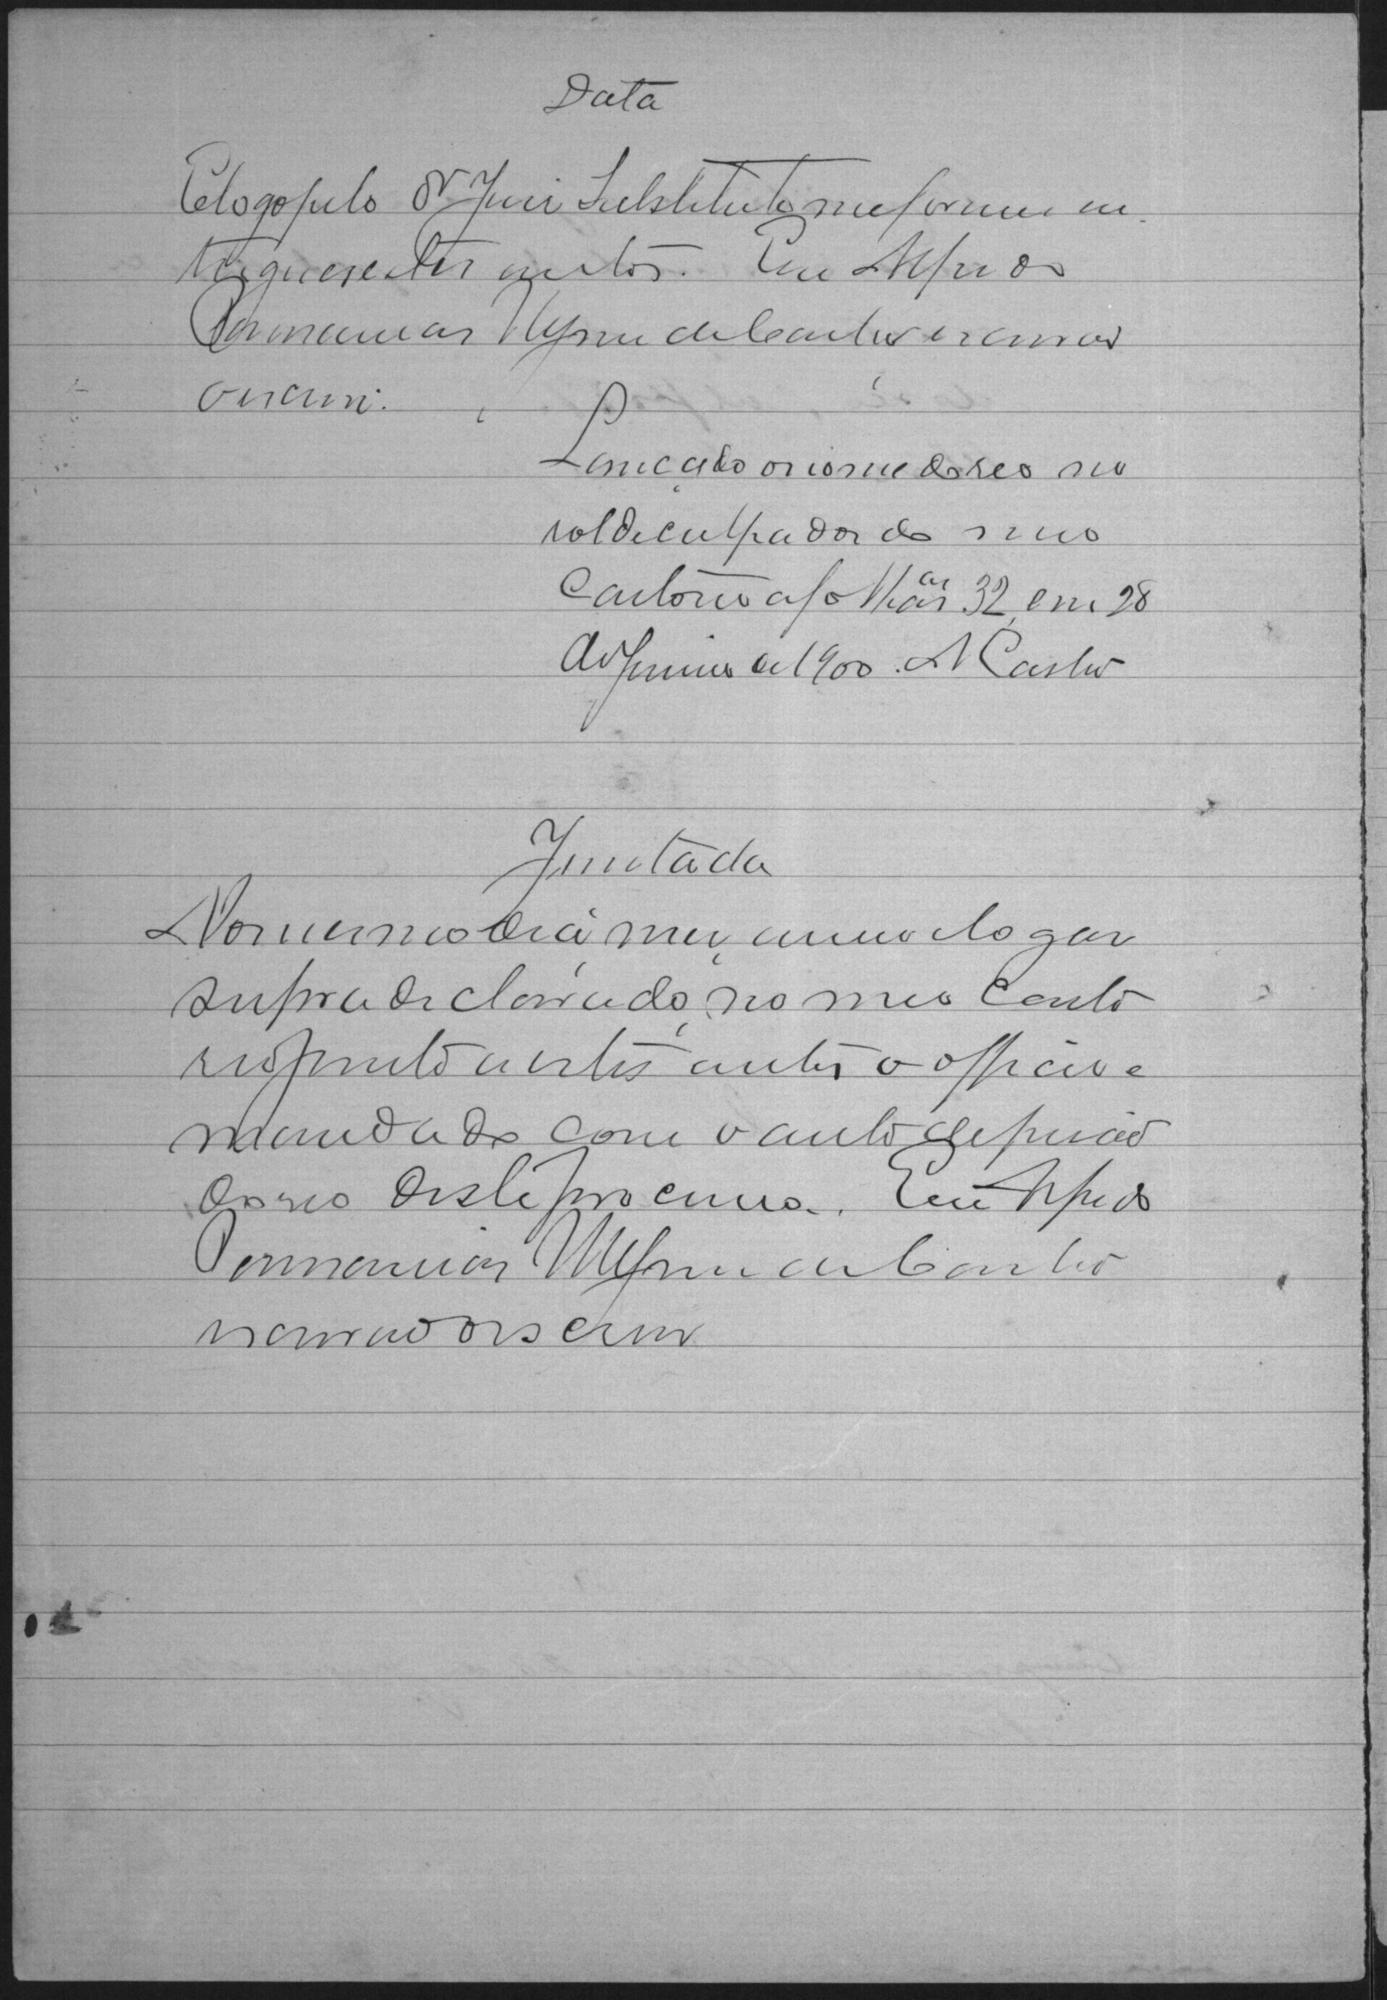 Data
E logo pelo Dr Juiz Substituto me foram en
tregues estes autos. Eu Alfredo
de Castro escrivão
o escrevi.
Lançado o nome do reo no
rol de culpados do meu
Cartorio a folhas 32, em 28
de Junho de 1900. A Castro
Juntada
No mesmo dia, mez, anno e logar
supra declarado, no meu Carto
rio junto a estes autos o officio e
mandado com o auto de prisão
do reo deste processo. Eu Alfredo
de Castro
escrivão o escrevi